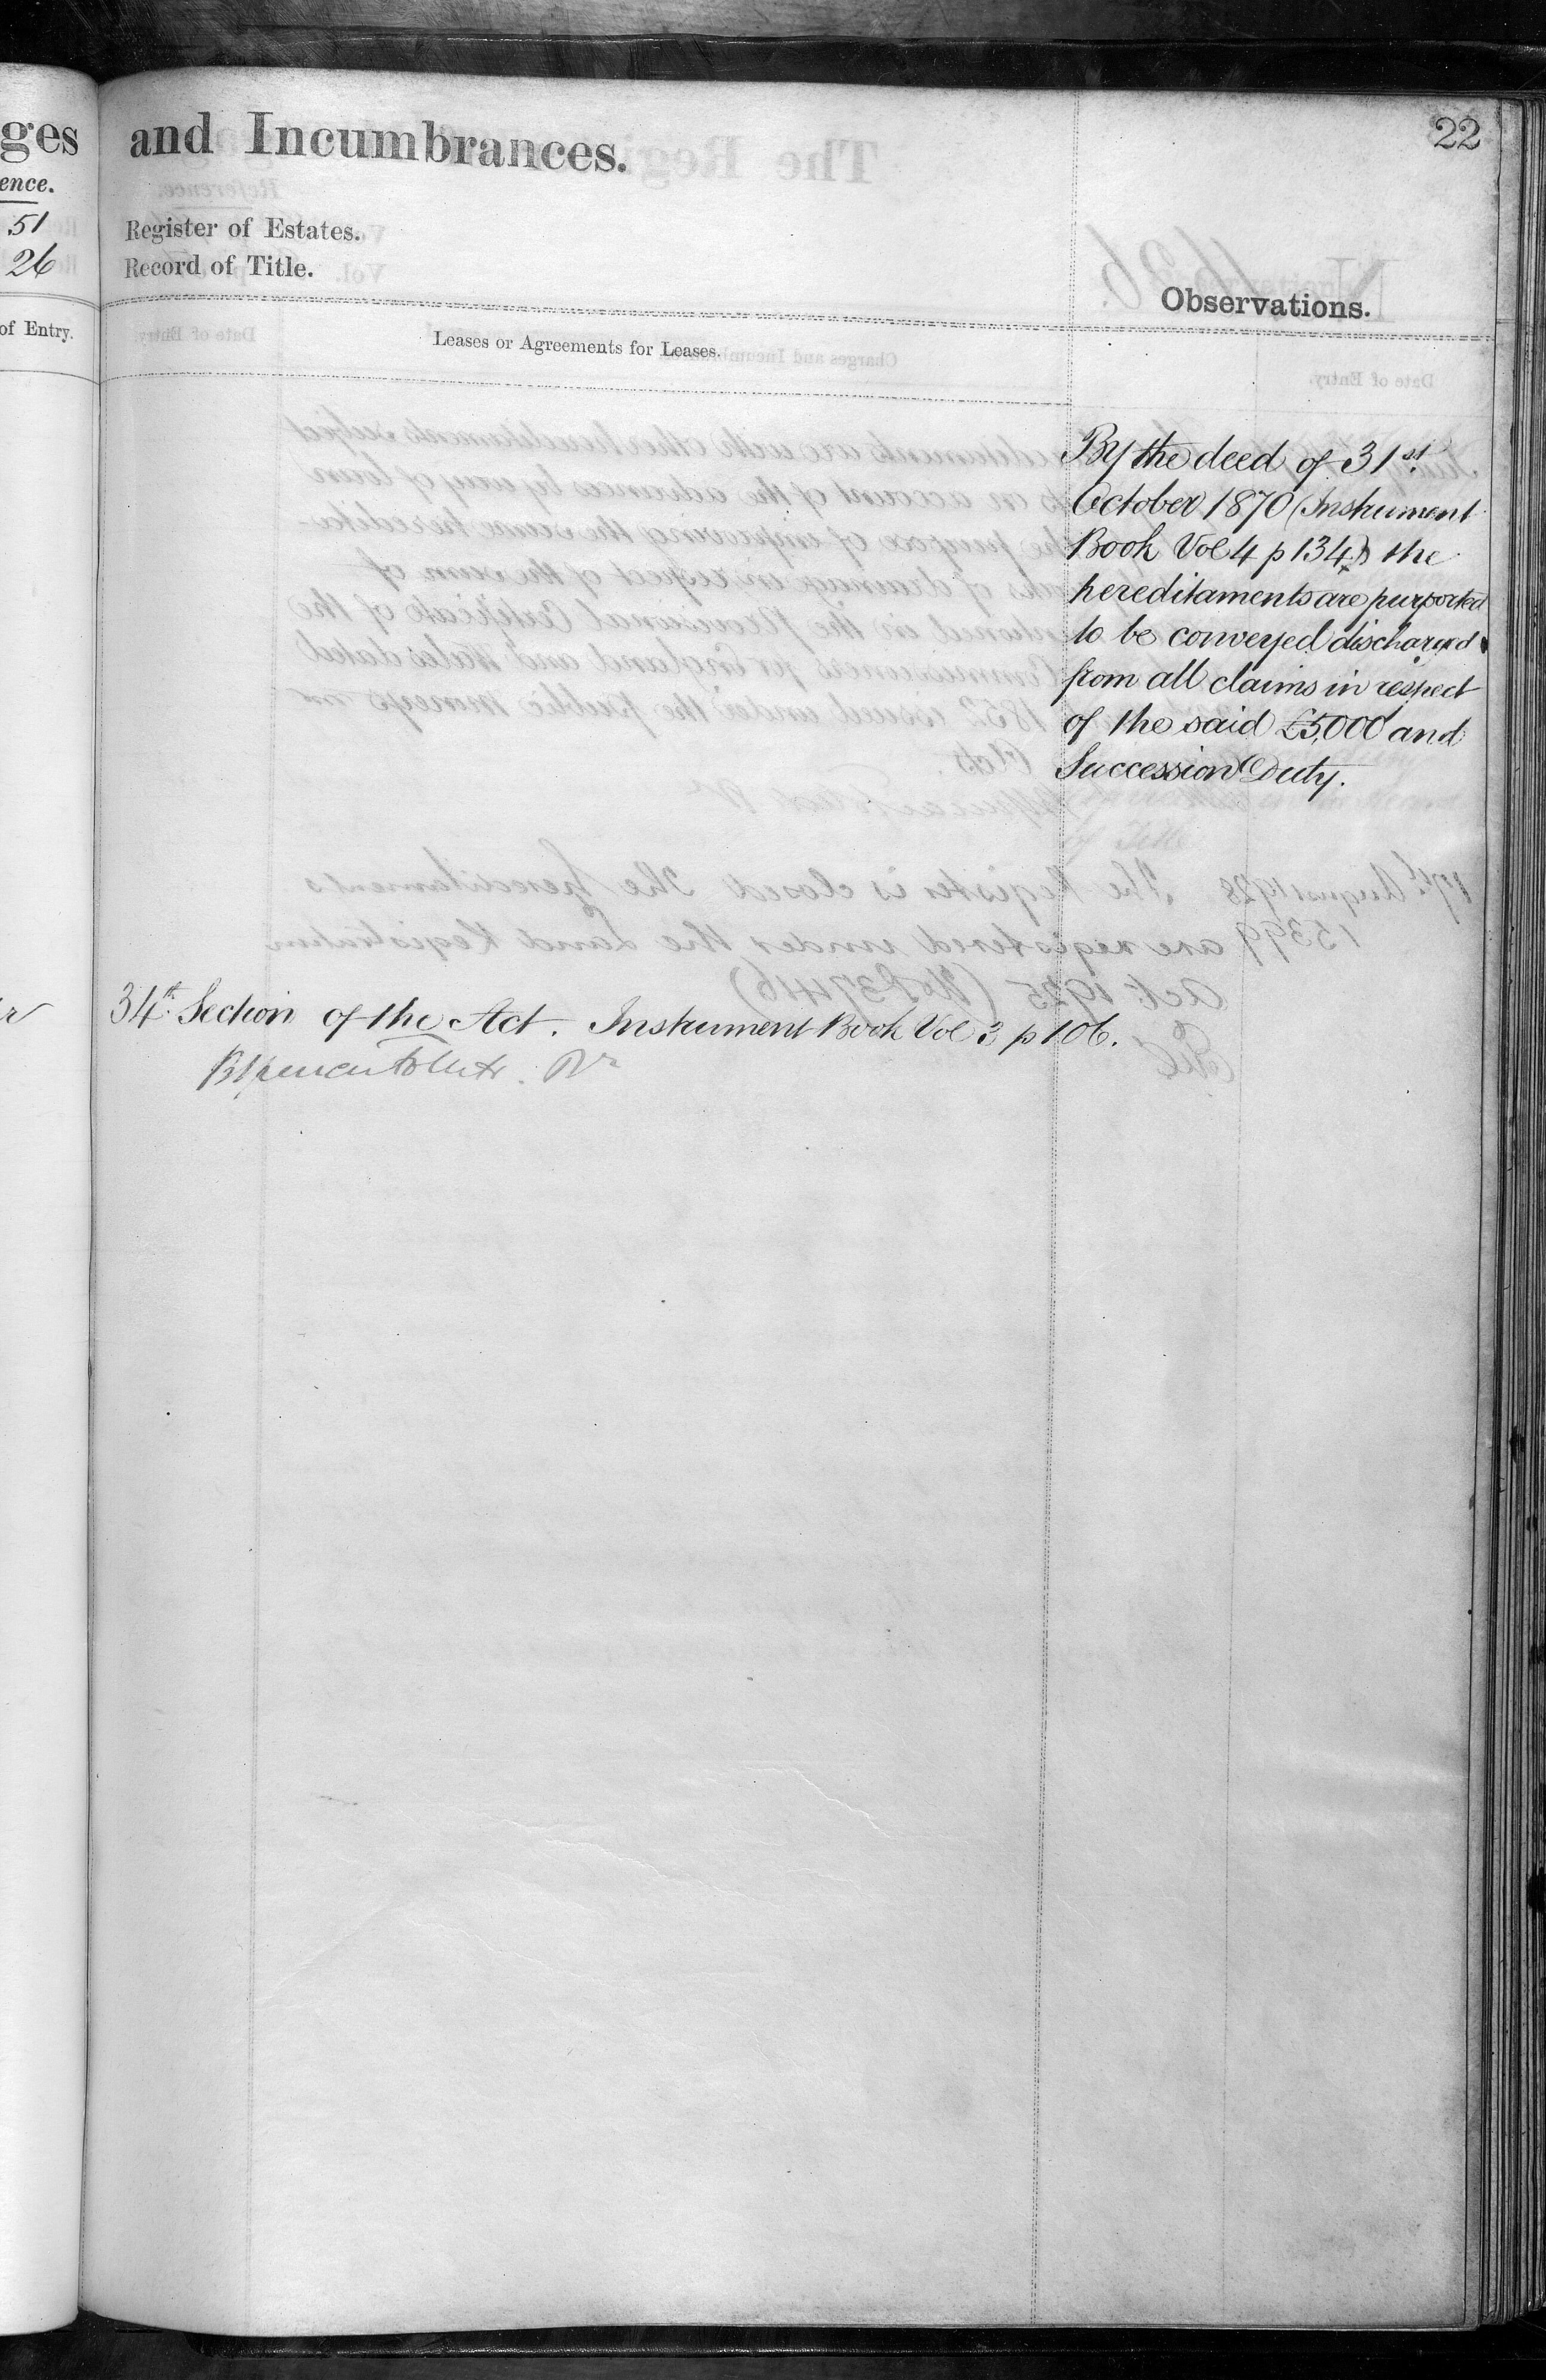 ges
ence.
51
26
of Entry.
and Incumbrances.
22
Register of Estates.
Record of Title.
Observations.
Leases or Agreements for Leases.
By the deed of 31st
October 1870 (Instrument
Book Vol 4 p 134) the
hereditaments are purported
to be conveyed discharged
from all claims in respect
of the said £5,000 and
Succession Duty.
34th Section of the Act. Instrument Book Vol 3 p 106.